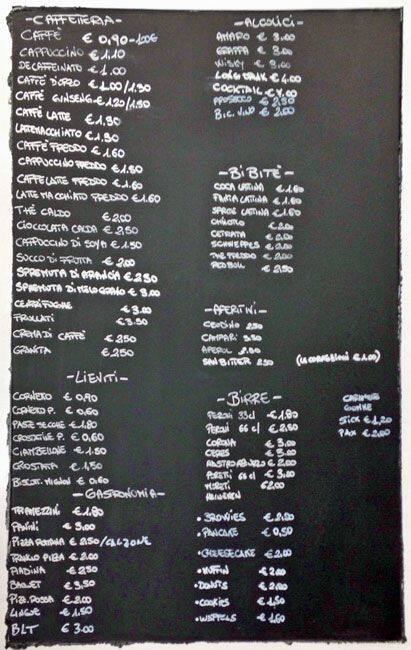 -CAFFETTERIA-
CAFFE' € 0,90-1,00€
CAPPUCCINO € 1,10
DECAFFEINATO € 1.00
CAFFE' D'ORZO € 1.00/1.30
CAFFE' GINSENG € 1.20/1.50
CAFFE' LATTE € 1.30
LATTEMACCHIATO € 1.30
CAFFE' FREDDO € 1.60
CAPPUCCINO FREDDO € 1.80
CAFFELATTE FREDDO € 1.60
LATTE MACCHIATO FREDDO € 1.60
THE' CALDO € 2.00
CIOCCOLATA CALDA € 2,50
CAPPUCCINO DI SOYA € 1.50
SUCCO DI FRUTTA € 2.00
SPREMUTA DI ARANCIA € 2.50
SPREMUTA DI MELOGRANO € 3.00
CENTRIFUGHE € 3.00
FRULLATI € 3.50
CREMA DI CAFFE' € 2.50
GRANITA € 2,50
-LIEVITI-
CORNETTO € 0,90
CORNETTO P. € 0,60
PASTE SECCHE € 1.80
CROSTATINE P. € 0,60
CIAMBELLONE € 1.50
CROSTATA € 1,50
BISCOT. MIGNON € 0,60
-GASTRONOMIA-
TRAMEZZINI € 1.80
PANINI € 3.00
PIZZA ROMANA € 2,50/CALZONE
TRANCIO PIZZA € 2.00
PIADINA € 2,50
BAGUET € 3,50
PIZ. ROSSA € 2.00
LINGUE € 1.50
BLT € 3.00
-ALCOLICI-
AMARO € 3,00
GRAPPA € 3.00
WISKY € 3.00
LONG DRINK € 4.00
COCKTAIL € 4.00
PROSECCO € 2,50
BIC. VINO € 2,00
-BIBITE-
COCA LATTINA € 1.60
FANTA LATTINA € 1.60
SPRITE LATTINA € 1.60
CHINOTTO € 2.00
CEDRATA € 2.00
SCHWEPPES € 2.00
THE FREDDO € 2.00
RED BULL € 2,50
-APERITIVI-
CRODINO 2,50
CAMPARI 2.50
APEROL 2.50
SAN BITTER 2,50
-BIRRE-
PERONI 33cl € 1,80
PERONI 66 cl € 2.50
CORONA € 3.00
CERES € 3.00
NASTRO AZZURRO € 2.00
MORETTI € 2.00
HEINEKEN
• BROWIES € 2.50
• PANCAKE € 0,50
• CHEESECAKE € 2,00
• MUFFIN € 2.00
• DONUTS € 2.00
• COOKIES € 1,50
• WAFFELS € 1.60
CARAMELLE
GOMME
STICK € 1,20
PAX € 2,00